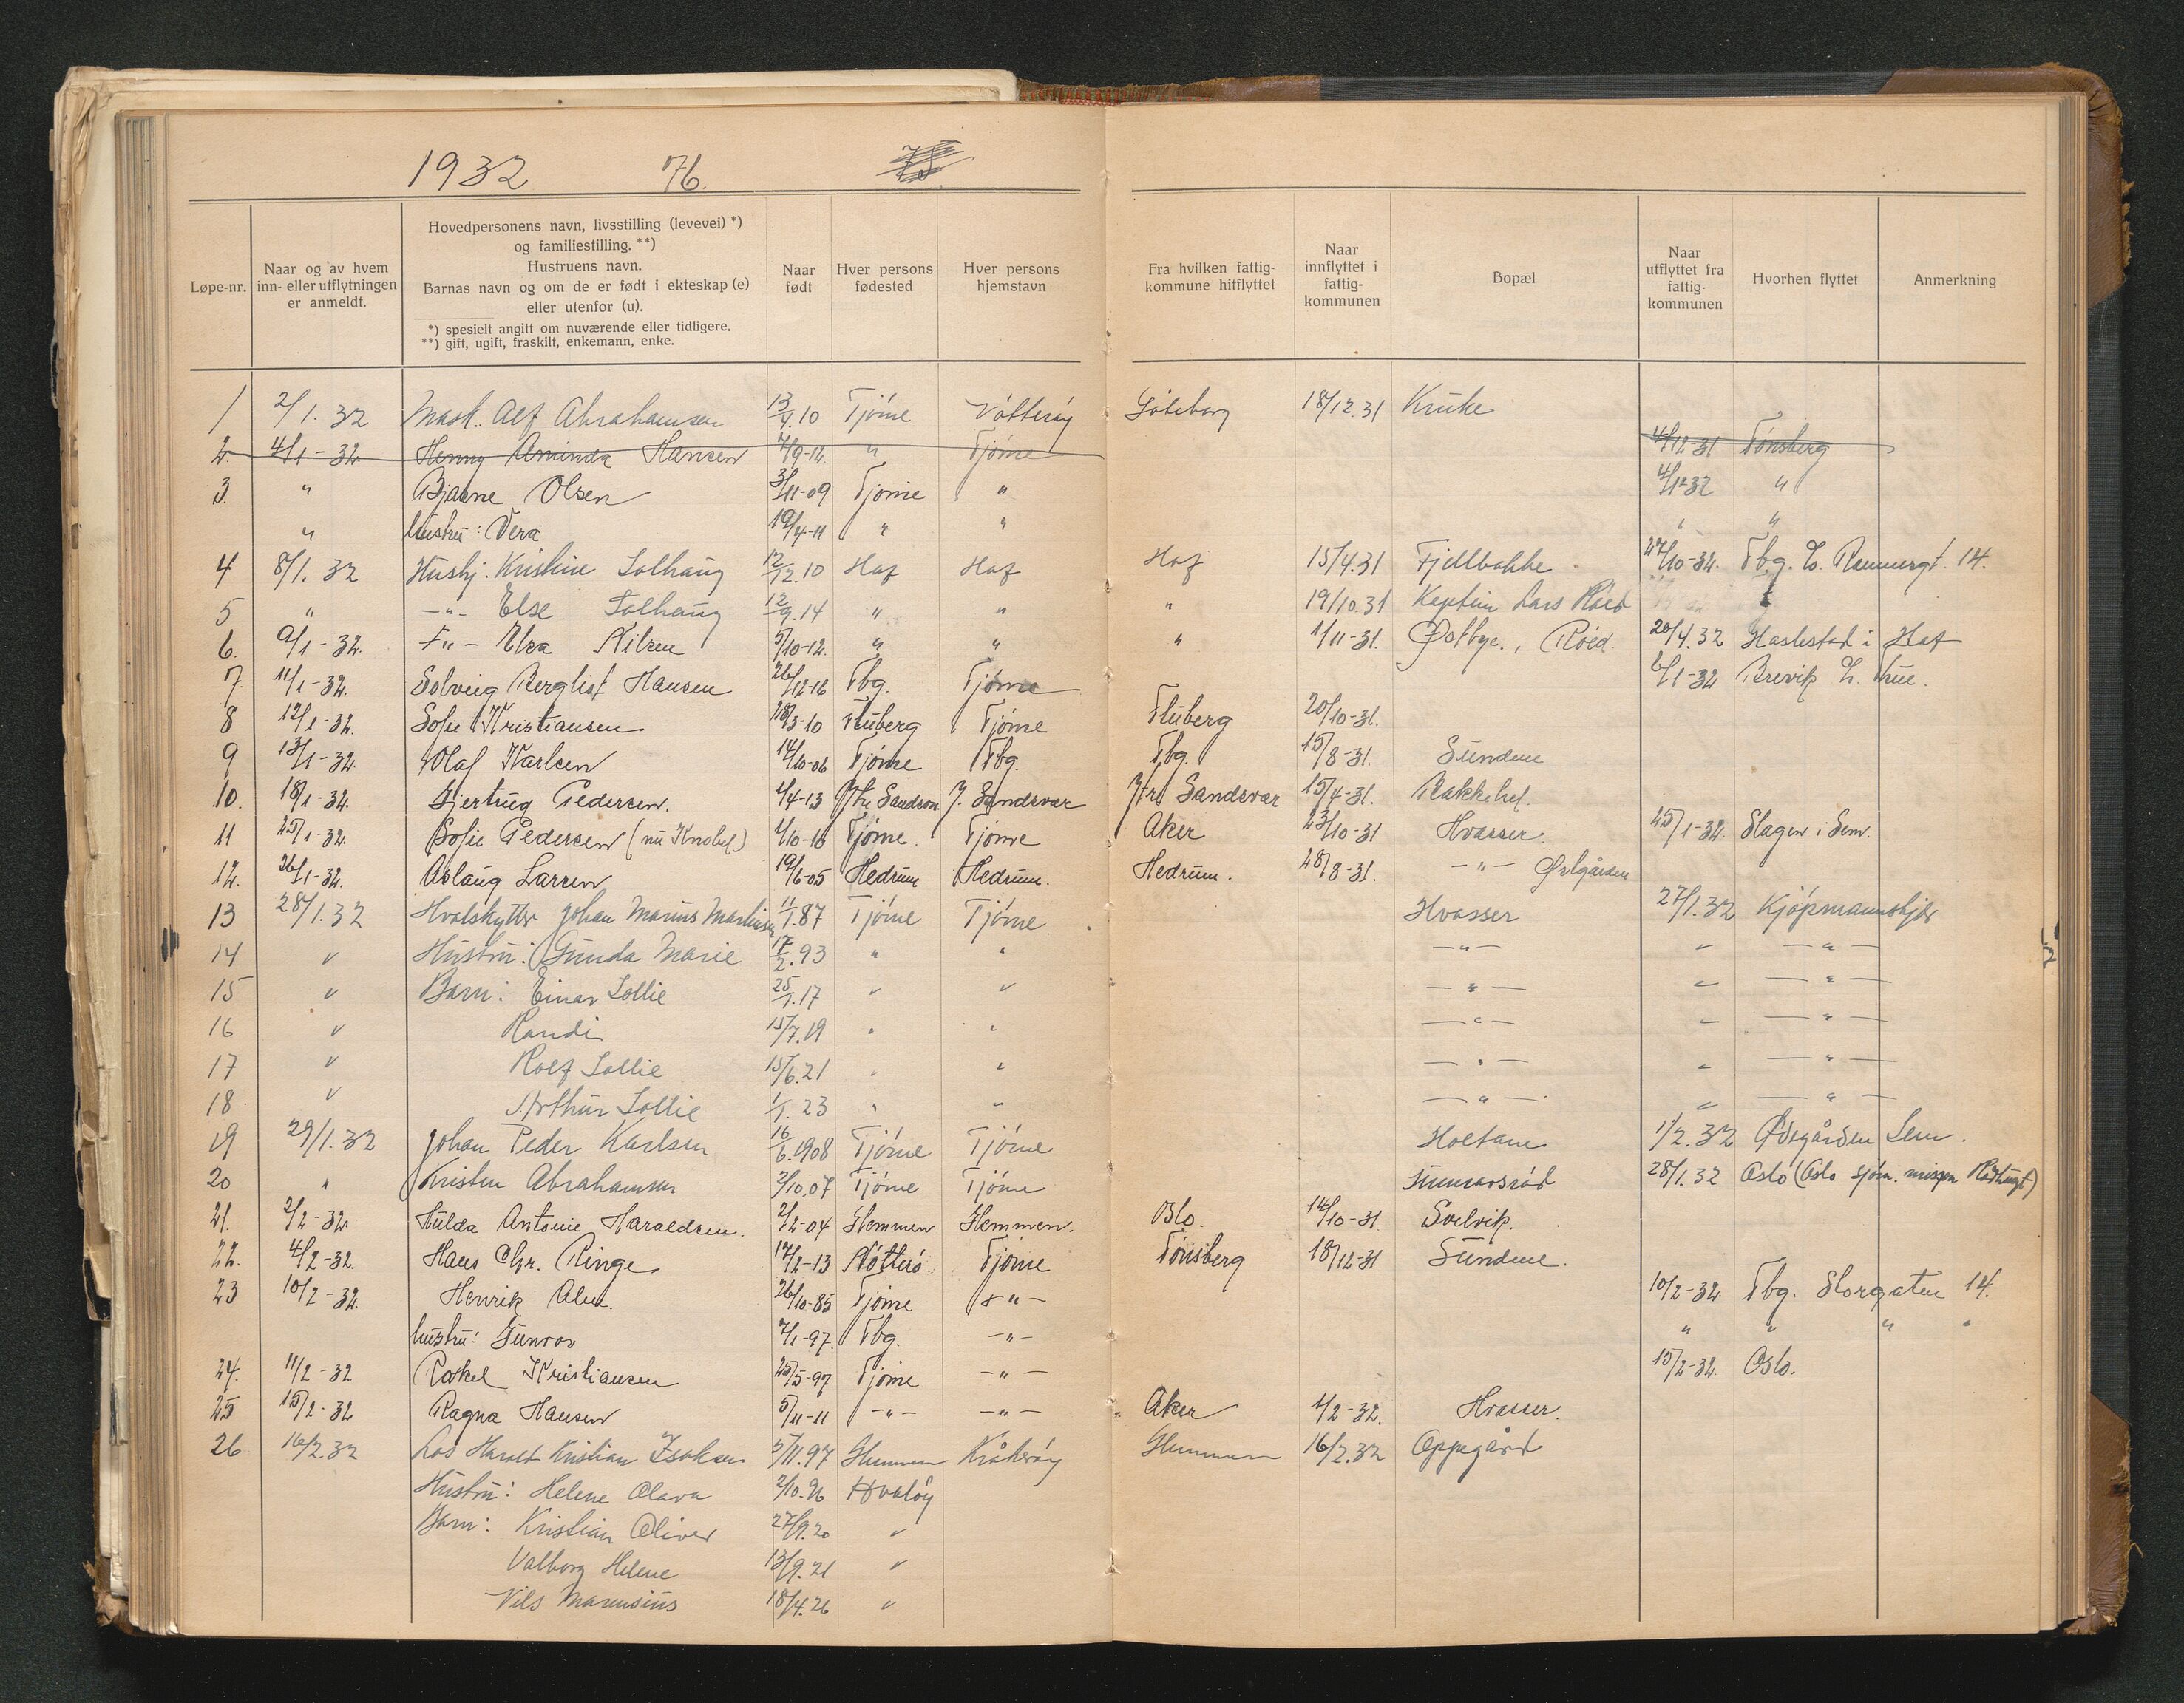 1932 76. 75.
Løpe-nr. | Naar og av hvem inn- eller utflytningen er anmeldt. | Hovedpersonens navn, livsstilling (levevei) *) og familiestilling. **) Hustruens navn. Barnas navn og om de er født i ekteskap (e) eller utenfor (u). *) spesielt angitt om nuværende eller tidligere. **) gift, ugift, fraskilt, enkemann, enke. | Naar født | Hver persons fødested | Hver persons hjemstavn | Fra hvilken fattig-kommune hitflyttet | Naar innflyttet i fattig-kommunen | Bopæl | Naar utflyttet fra fattig-kommunen | Hvorhen flyttet | Anmerkning
1 2/1. 32 Mask. Alf Abrahamsen 13/4.10 Tjöme Nötteröy Göteborg 18/12.31 Kruke
2. 4/1-32 Henny Aminda Hansen 7/9-12 " Tjöme 4/12-31 Tönsberg
3. " Bjarne Olsen 3/11-09 Tjöme " 4/12-32 "
" hustru: Vera 19/4-11 " " " "
4 8/1. 32 Hushj. Kristine Solhaug 12/12.10 Hof Hof Hof 15/4.31 Fjellbakke 24/10-32. Tbg. 14.
5 " -"- Else Solhaug 12/9.14 " " " 19/10.31 Kaptein Lars Röed
6. 9/1-32. -"- Elsa Nilsen 5/10-12 " " " 1/11-31. Østbye., Röed. 20/4.32 Haslestad i Hof
7. 11/1-32. Solveig Bergliot Hansen 26/12-16 Tbg. Tjöme 6/1-32 Brevik
8 12/1-32. Sofie Kristiansen 28/3-10 Fluberg Tjöme Fluberg 20/10-31.
9 13/1-32. Olaf Karlsen 14/10-06 Tjöme Tbg. Tbg. 15/8-31. Sundene
10. 18/1-32. Gjertrud Pedersen. 4/4-13 Ytr. Sandsvær Y. Sandsvær Ytr. Sandsvær 15/4-31. Bakkehel.
11 25/1-32. Sofie Pedersen (nu Knobel) 1/10-10 Tjöme. Tjöme Aker 23/10-31 Hvasser. 25/1-32. Slagen i Sem.
12. 26/1-32. Aslaug Larsen 19/6-05 Hedrum Hedrum. Hedrum. 28/8-31. -"- Østgården
13 28/1.32 Hvalskytter Johan Marius Martinsen 11/1.87 Tjöme Tjöme Hvasser 27/1.32 Kjöpmannskjær
14 " Hustru: Gunda Marie 17/2.93 " " -"- " -"-
15 " Barn: Einar Sollie 25/1.17 " " -"- " -"-
16 " Randi 15/7.19 " " -"- " -"-
17 " Rolf Sollie 15/6.21 " " -"- " -"-
18 " Arthur Sollie 1/1. 23 " " -"- " -"-
19 29/1.32 Johan Peder Karlsen 16/6.1908 Tjöme Tjöme Holtane 1/2.32 Ødegården Sem.
20 " Kristen Abrahamsen 2/10.07 Tjöme Tjöme Gunnarsröd 28/1.32 Oslo (Oslo sjöm. misjon Rådhusgt)
21. 2/2-32 Hulda Antonie Haraldsen. 2/2-04 Glemmen Glemmen. Oslo. 14/10-31. Solvik.
22. 4/2-32. Hans Chr. Ringe 17/2-13 Nötterö. Tjöme Tönsberg 18/12-31 Sundene.
23 10/2-32. Henrik Alm. 26/10-85 Tjöme -"- 10/2-32. Tbg. Storgaten 14.
hustru: Gunvor 7/1-97. Tbg. -"- " " " "
24. 11/2-32 Rakel Kristiansen 25/5-97 Tjöme -"- 10/2-32. Oslo.
25 15/2-32 Ragna Hansen 5/11-11 -"- -"- Aker 1/2-32. Hvasser.
26 16/2.32 Los Harald Kristian Isaksen 5/11.97 Glemmen Kråkeröy Glemmen 16/2.32 Oppegård
Hustru: Helene Olava 2/10.96 Hvalöy
Barn: Kristian Oliver 27/9.20 "
Valborg Helene 13/9.21 "
Nils Marensius 18/4.26 "